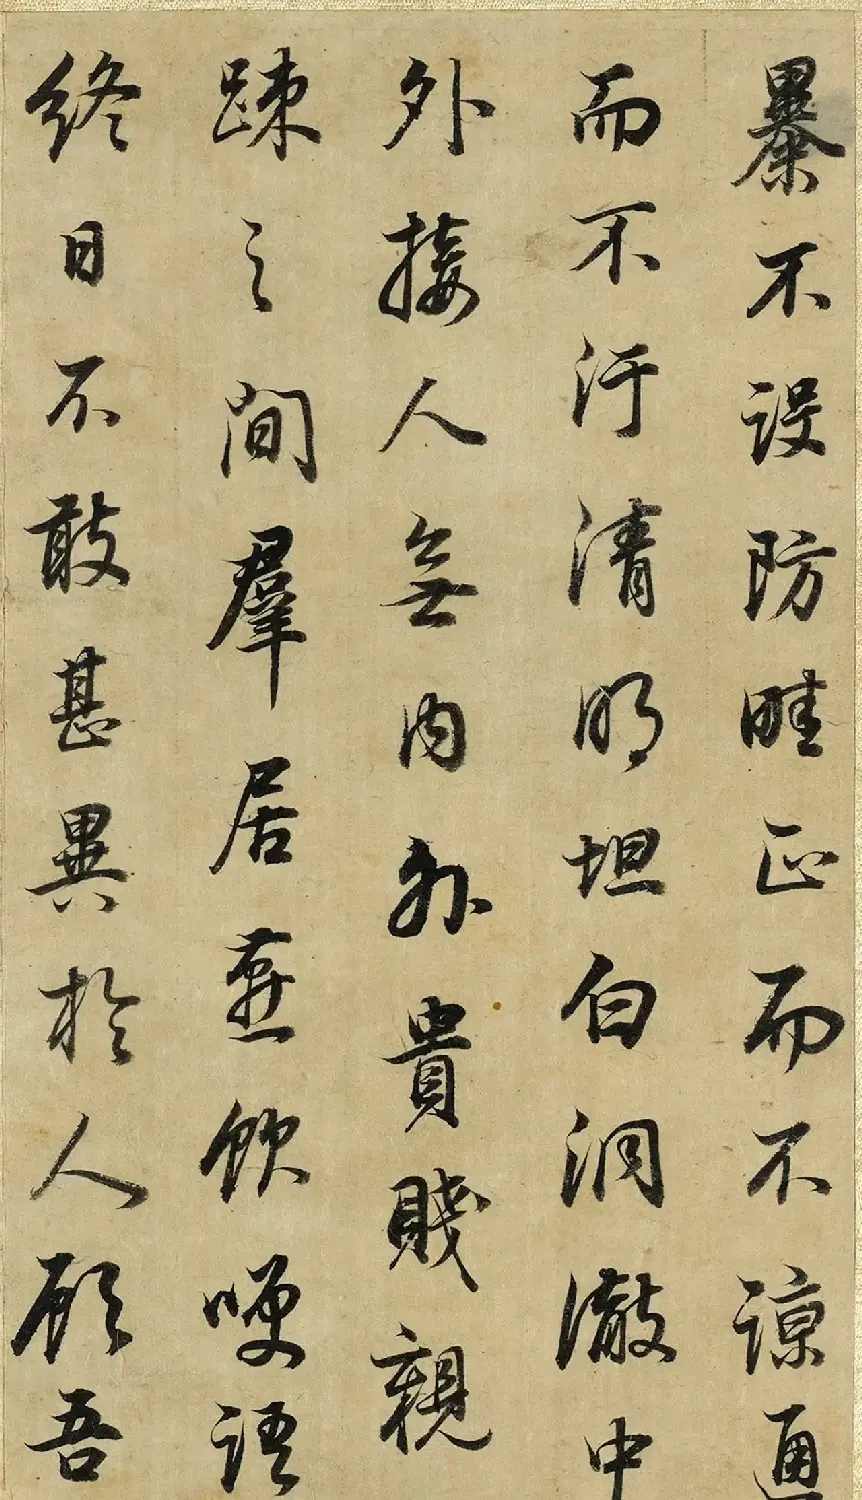 暴不設防畦正而不諒通
而不汙清明坦白洞澈中
外接人無內外貴賤親
踈之間羣居燕飲哽語
終日不敢甚異於人顧吾